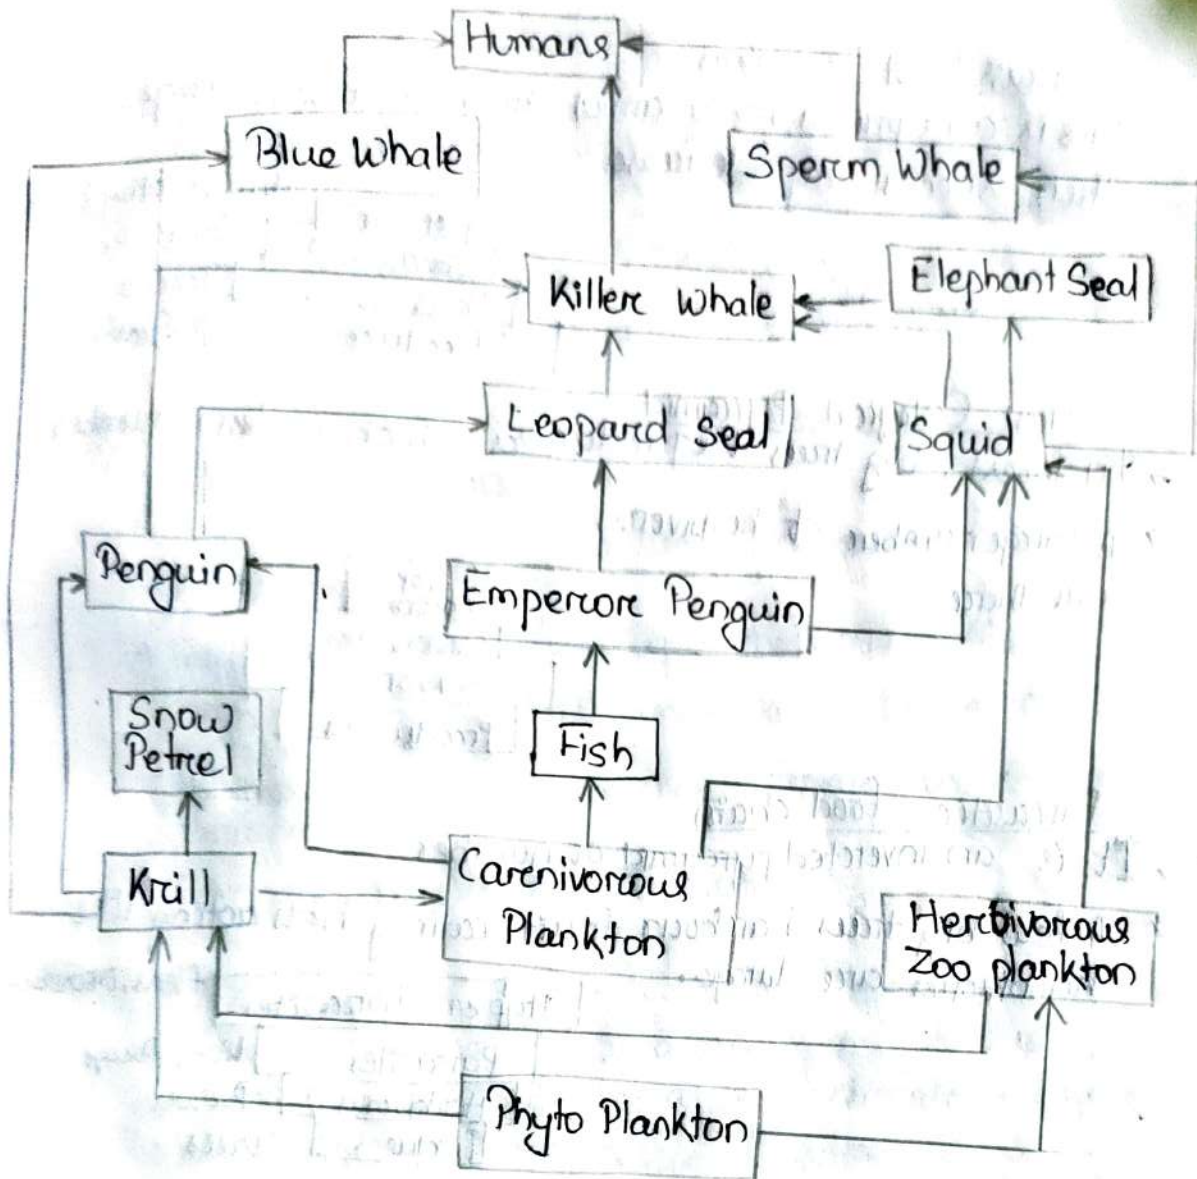 Humans
Blue Whale
Sperm Whale
Killer Whale
Elephant Seal
Leopard Seal
Squid
Penguin
Emperor Penguin
Snow
Petrel
Fish
Krill
Carnivorous
Plankton
Herbivorous
Zoo plankton
Phyto Plankton